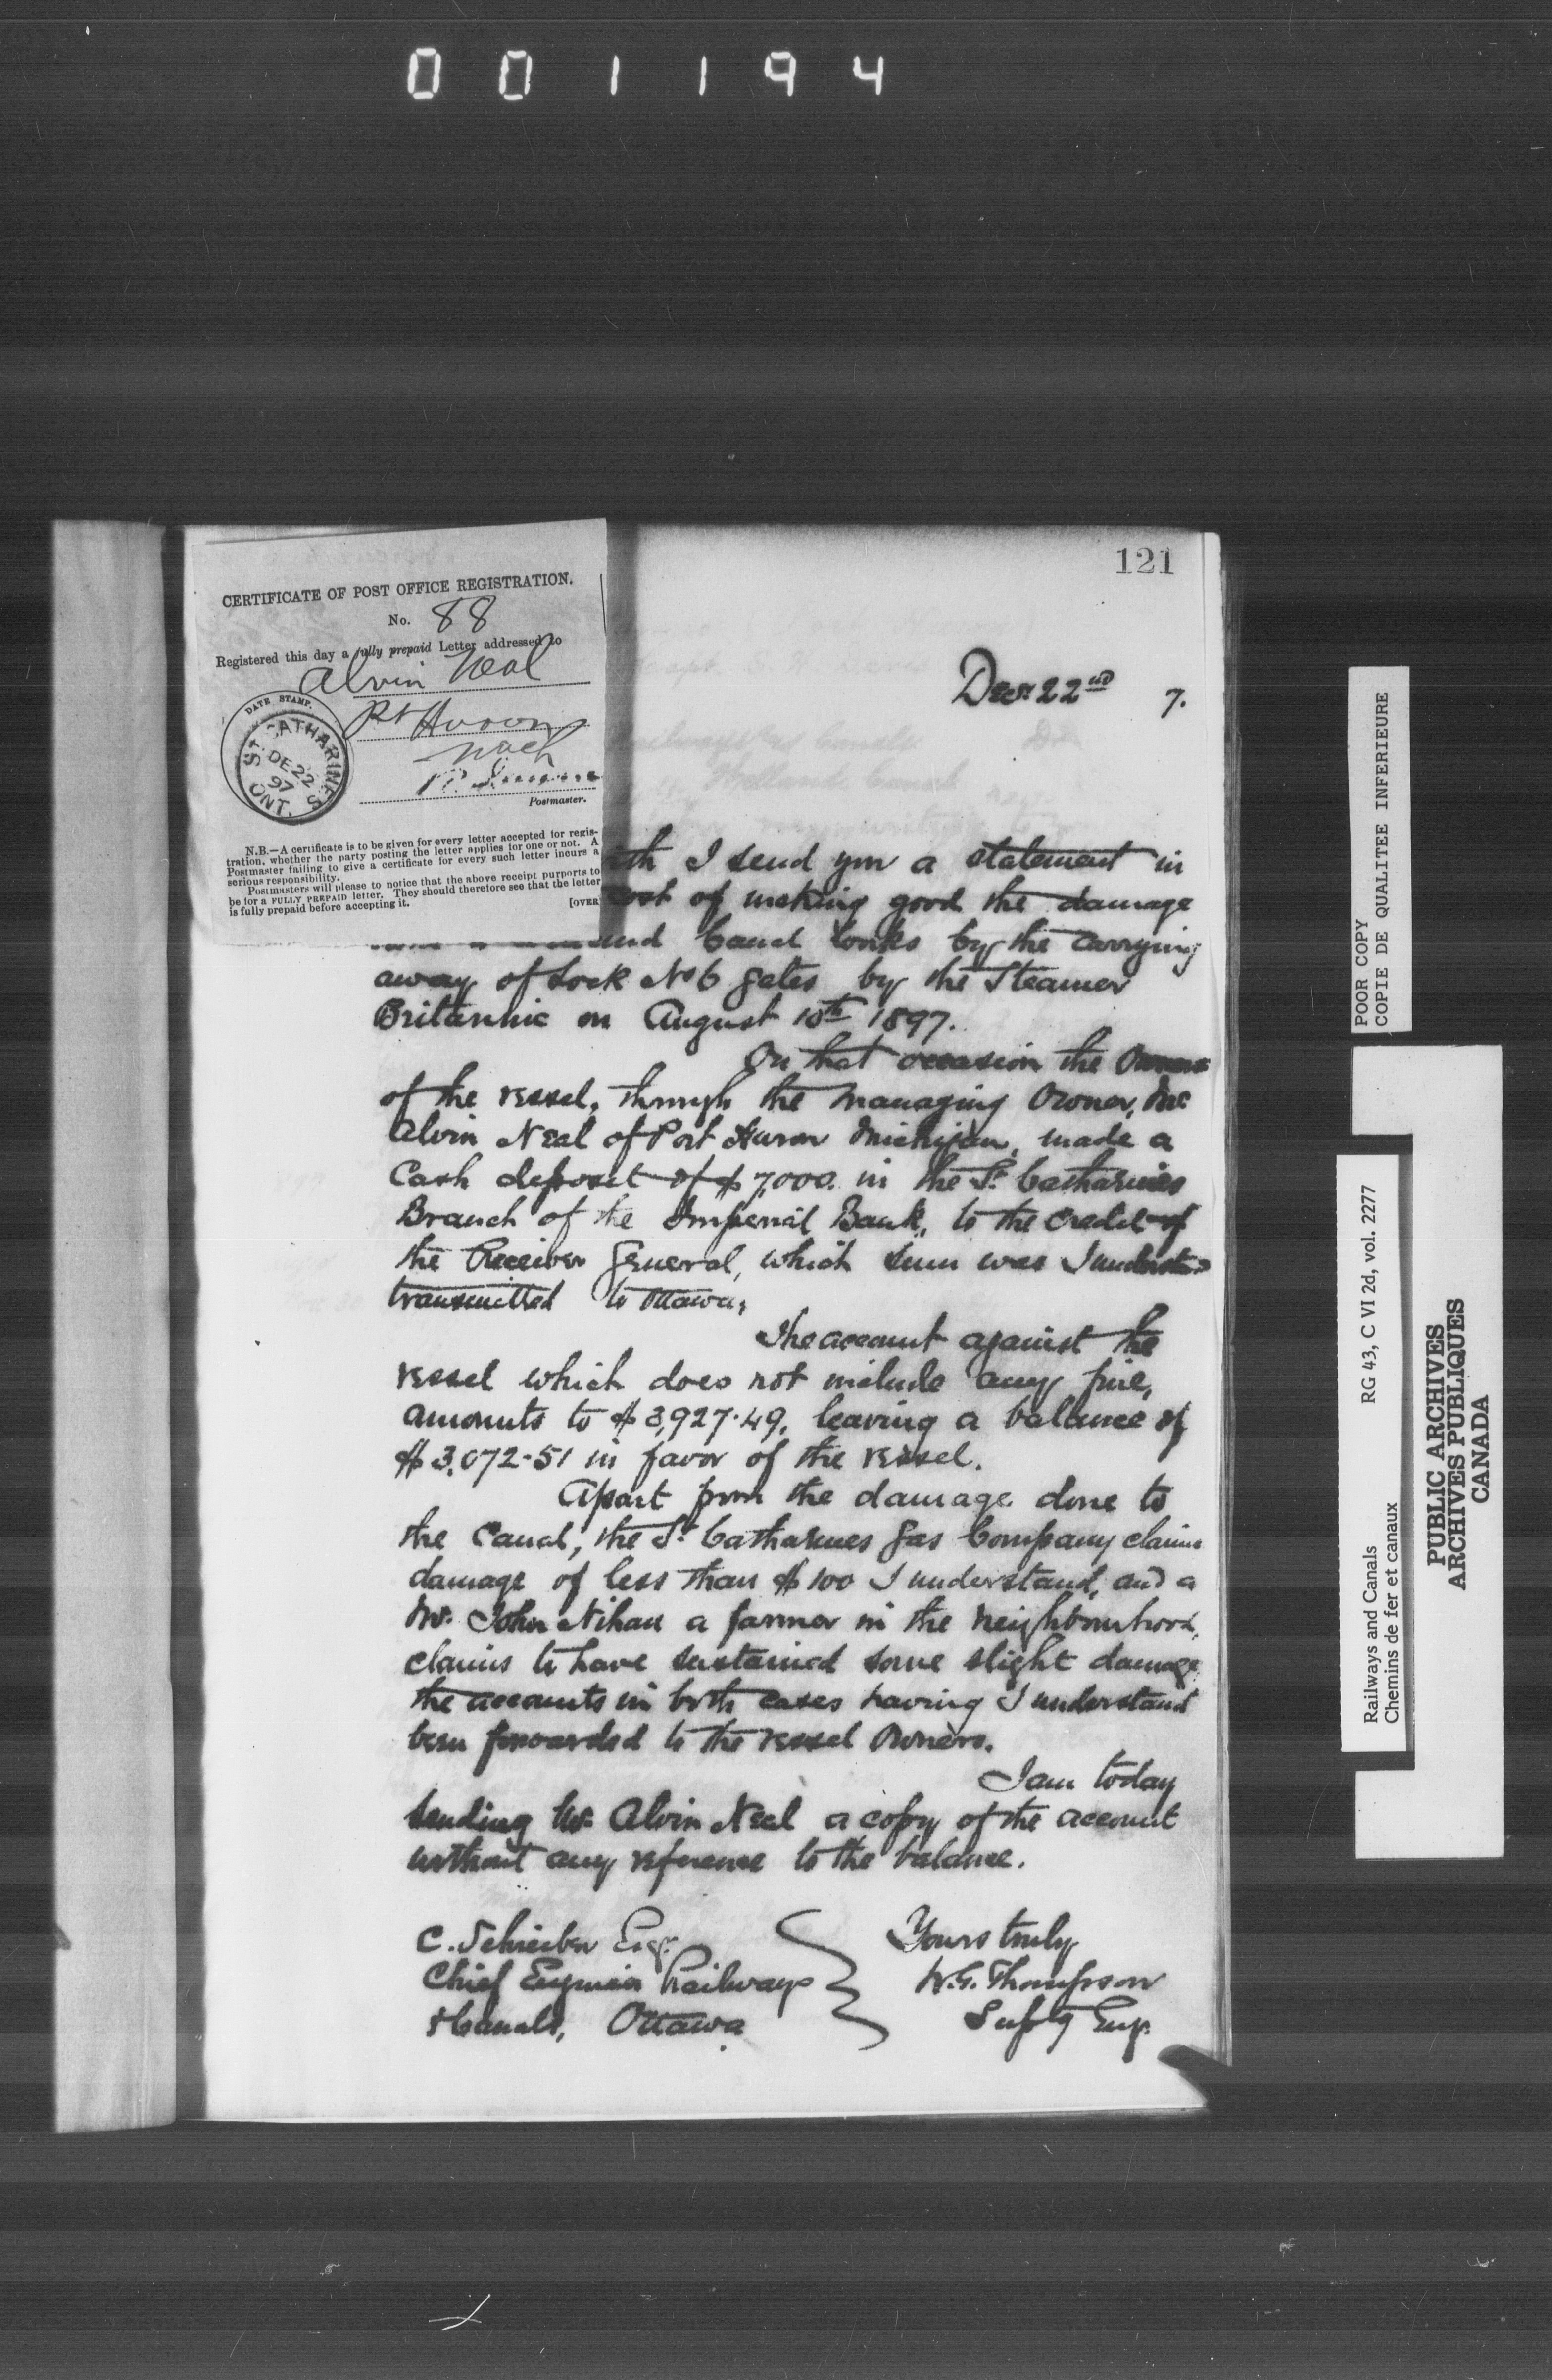 001194
121
CERTIFICATE OF POST OFFICE REGISTRATION.
No. 88
Registered this day a fully prepaid Letter addressed to
Alvin Neal
Pt Huron
Mich
DATE STAMP.
ST. CATHARINES
DE 22
97
ONT.
Postmaster.
N.B.—A certificate is to be given for every letter accepted for regis-
tration, whether the party posting the letter applies for one or not. A
Postmaster failing to give a certificate for every such letter incurs a
serious responsibility.
Postmasters will please to notice that the above receipt purports to
be for a FULLY PREPAID letter. They should therefore see that the letter
is fully prepaid before accepting it.
[OVER
Decr. 22nd 7.
ith I send you a statement in
cost of making good the damage
and Canal works by the carrying
away of Lock No 6 gates by the Steamer
Britannic on August 10th 1897.
On that occasion the Owners
of the vessel, through the Managing Owner, Mr.
Alvin Neal of Port Huron Michigan, made a
Cash deposit of $7,000. in the St. Catharines
Branch of the Imperial Bank, to the credit of
the Receiver General, which sum was I understand
transmitted to Ottawa.
The account against the
vessel which does not include any fine,
amounts to $3,927.49, leaving a balance of
$3,072.51 in favor of the vessel.
Apart from the damage done to
the Canal, the St. Catharines Gas Company claims
damage of less than $100 I understand, and a
Mr. John Nihan a farmer in the neighbourhood,
claims to have sustained some slight damage
the accounts in both cases having I understand
been forwarded to the vessel Owners.
I am today
sending Mr. Alvin Neal a copy of the account
without any reference to the balance.
C. Schreiber Esqr.
Chief Engineer Railways
& Canals, Ottawa.
Yours truly
W.G. Thompson
Suptg Engr.
POOR COPY
COPIE DE QUALITEE INFERIEURE
Railways and Canals RG 43, C VI 2d, vol. 2277
Chemins de fer et canaux
PUBLIC ARCHIVES
ARCHIVES PUBLIQUES
CANADA